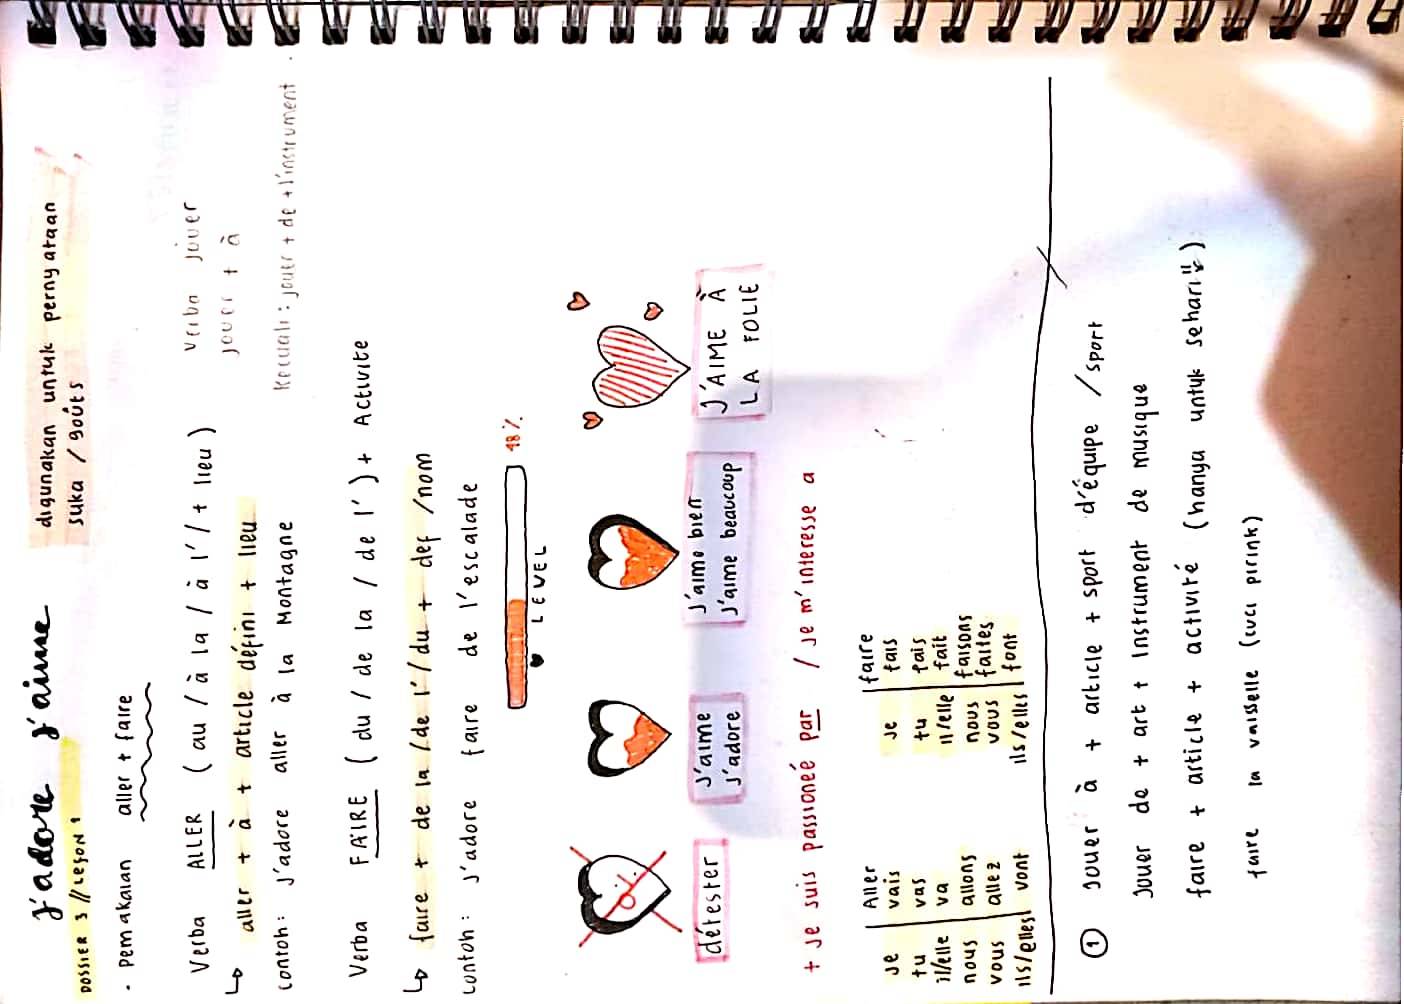 j'adore j'aime
DOSSIER 3 // LEÇON 1
digunakan untuk pernyataan
suka / goûts
• Pemakaian aller + faire
Verba ALLER (au / à la / à l' / + lieu)
↳ aller + à + article défini + lieu
contoh: J'adore aller à la Montagne
verba jouer
jouer + à
kecuali: jouer + de + l'instrument
Verba FAIRE (du / de la / de l') + Activite
↳ faire + de la / de l' / du + def / nom
contoh: J'adore faire de l'escalade
48%
LEVEL
détester
J'aime
J'adore
J'aime bien
J'aime beaucoup
J'AIME À
LA FOLIE
+ Je suis passionée par / Je m'interesse a
Aller
Je vais
tu vas
il/elle va
nous allons
vous allez
ils/elles vont
faire
Je fais
tu fais
il/elle fait
nous faisons
vous faites
ils/elles font
① Jouer à + article + sport d'équipe / sport
Jouer de + art + Instrument de musique
faire + article + activité (hanya untuk sehari")
faire la vaisselle (cuci pirink)